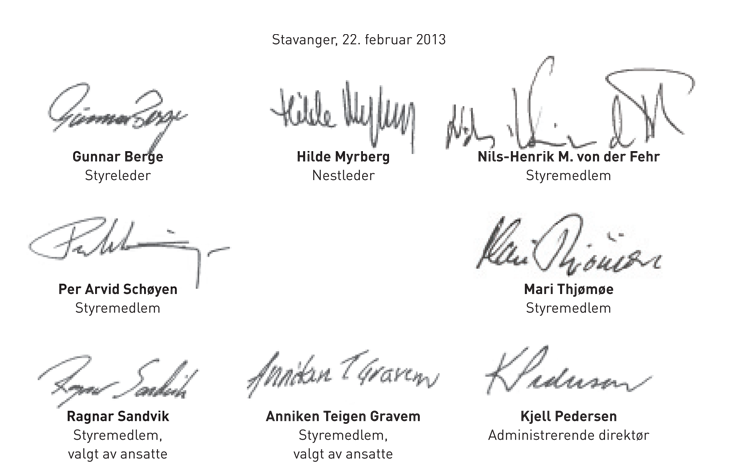 Stavanger, 22. februar 2013
Gunnar Berge
Hilde Myrberg
Nils-Henrik M. von der Fehr
Gunnar Berge
Styreleder
Hilde Myrberg
Nestleder
Nils-Henrik M. von der Fehr
Styremedlem
Mari Thjømøe
Per Arvid Schøyen
Styremedlem
Mari Thjømøe
Styremedlem
Ragnar Sandvik
Anniken T Gravem
K Pedersen
Ragnar Sandvik
Styremedlem,
valgt av ansatte
Anniken Teigen Gravem
Styremedlem,
valgt av ansatte
Kjell Pedersen
Administrerende direktør